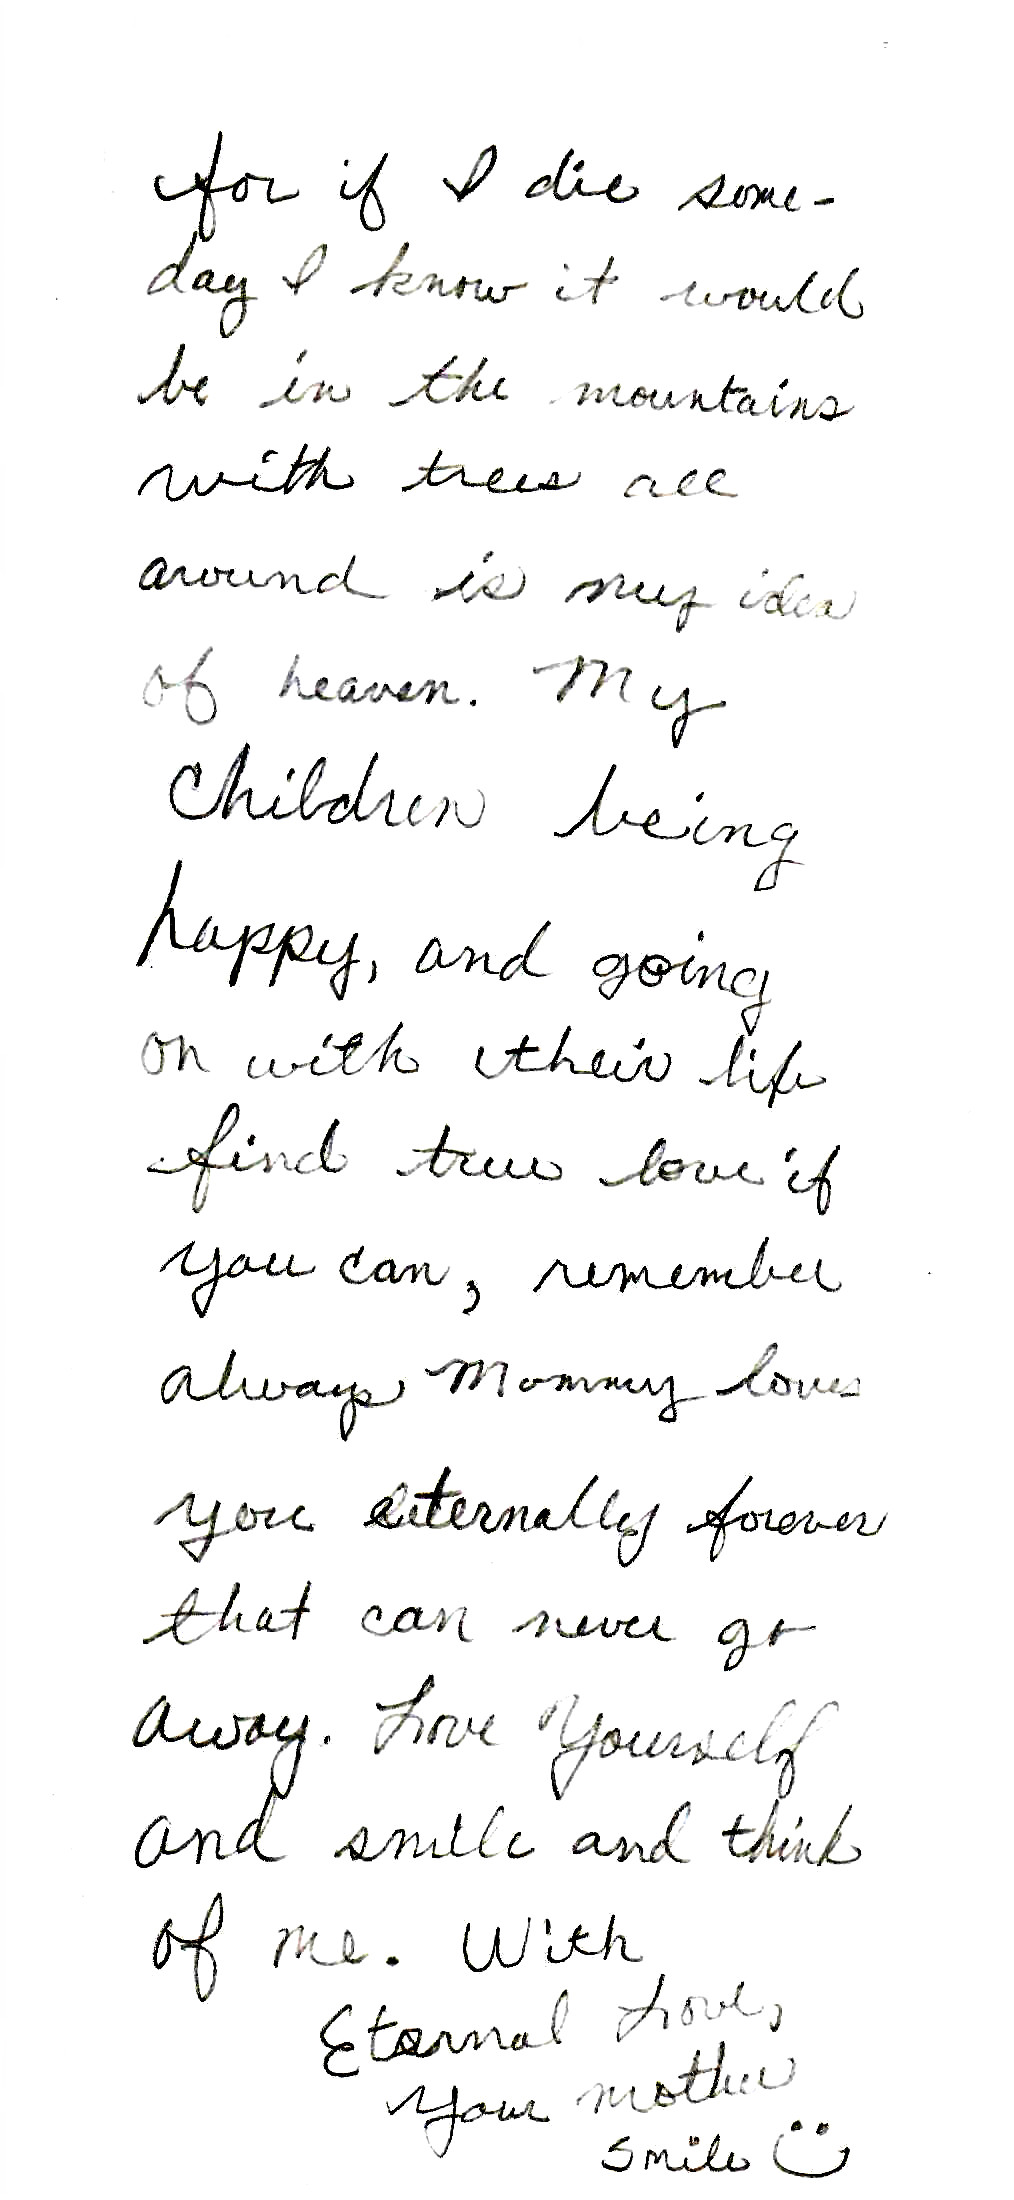 for if I die some-
day I know it would
be in the mountains
with trees all
around is my idea
of heaven. My
Children being
happy, and going
on with their life
find true love if
you can, remember
always Mommy loves
you eternally forever
that can never go
away. Love Yourself
and smile and think
of me. With
Eternal Love,
Your mother
Smile